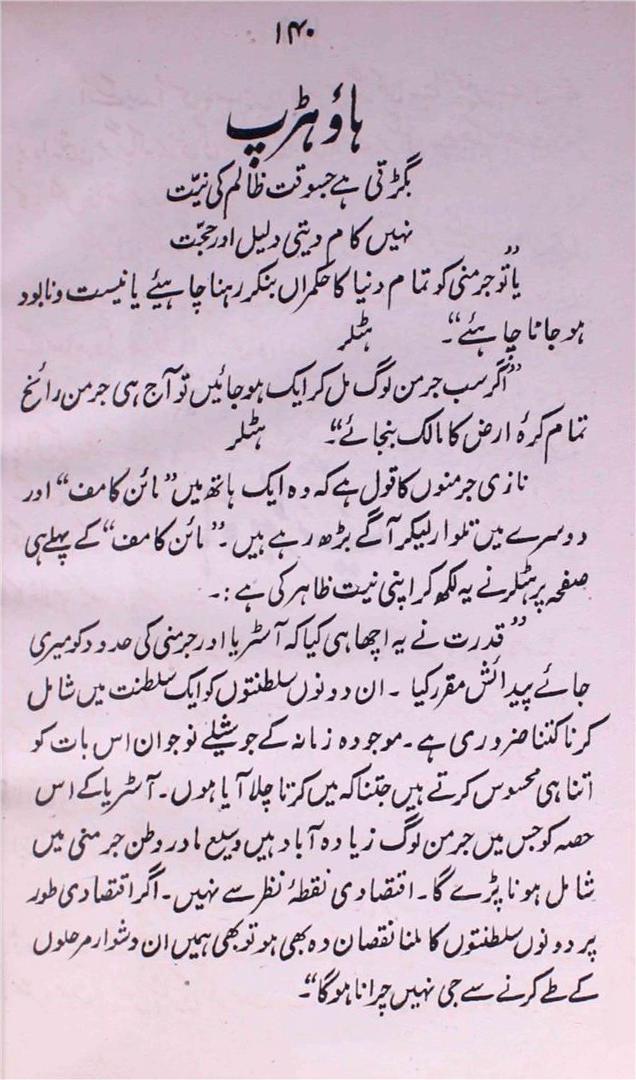 ۱۴۰
ہاؤ ہڑپ
بگڑتی ہے جسوقت ظالم کی نیّت
نہیں کام دیتی دلیل اور حجّت
”یا تو جرمنی کو تمام دنیا کا حکمراں بنکر رہنا چاہیئے یا نیست و نابود
ہو جانا چاہئے“۔ ہٹلر
”اگر سب جرمن لوگ مل کر ایک ہو جائیں تو آج ہی جرمن رائخ
تمام کرۂ ارض کا مالک بنجائے“۔ ہٹلر
نازی جرمنوں کا قول ہے کہ وہ ایک ہاتھ میں ”مائن کامف“ اور
دوسرے میں تلوار لیکر آگے بڑھ رہے ہیں۔ ”مائن کامف“ کے پہلے ہی
صفحہ پر ہٹلر نے یہ لکھ کر اپنی نیت ظاہر کی ہے :۔
”قدرت نے یہ اچھا ہی کیا کہ آسٹریا اور جرمنی کی حدود کو میری
جائے پیدائش مقرر کیا ۔ ان دونوں سلطنتوں کو ایک سلطنت میں شامل
کرنا کتنا ضروری ہے ۔ موجودہ زمانہ کے جوشیلے نوجوان اس بات کو
اتنا ہی محسوس کرتے ہیں جتنا کہ میں کرتا چلا آیا ہوں۔ آسٹریا کے اس
حصہ کو جس میں جرمن لوگ زیادہ آباد ہیں وسیع مادر وطن جرمنی میں
شامل ہونا پڑے گا۔ اقتصادی نقطۂ نظر سے نہیں۔ اگر اقتصادی طور
پر دونوں سلطنتوں کا ملنا نقصان دہ بھی ہو تو بھی ہمیں ان دشوار مرحلوں
کے طے کرنے سے جی نہیں چرانا ہوگا“۔